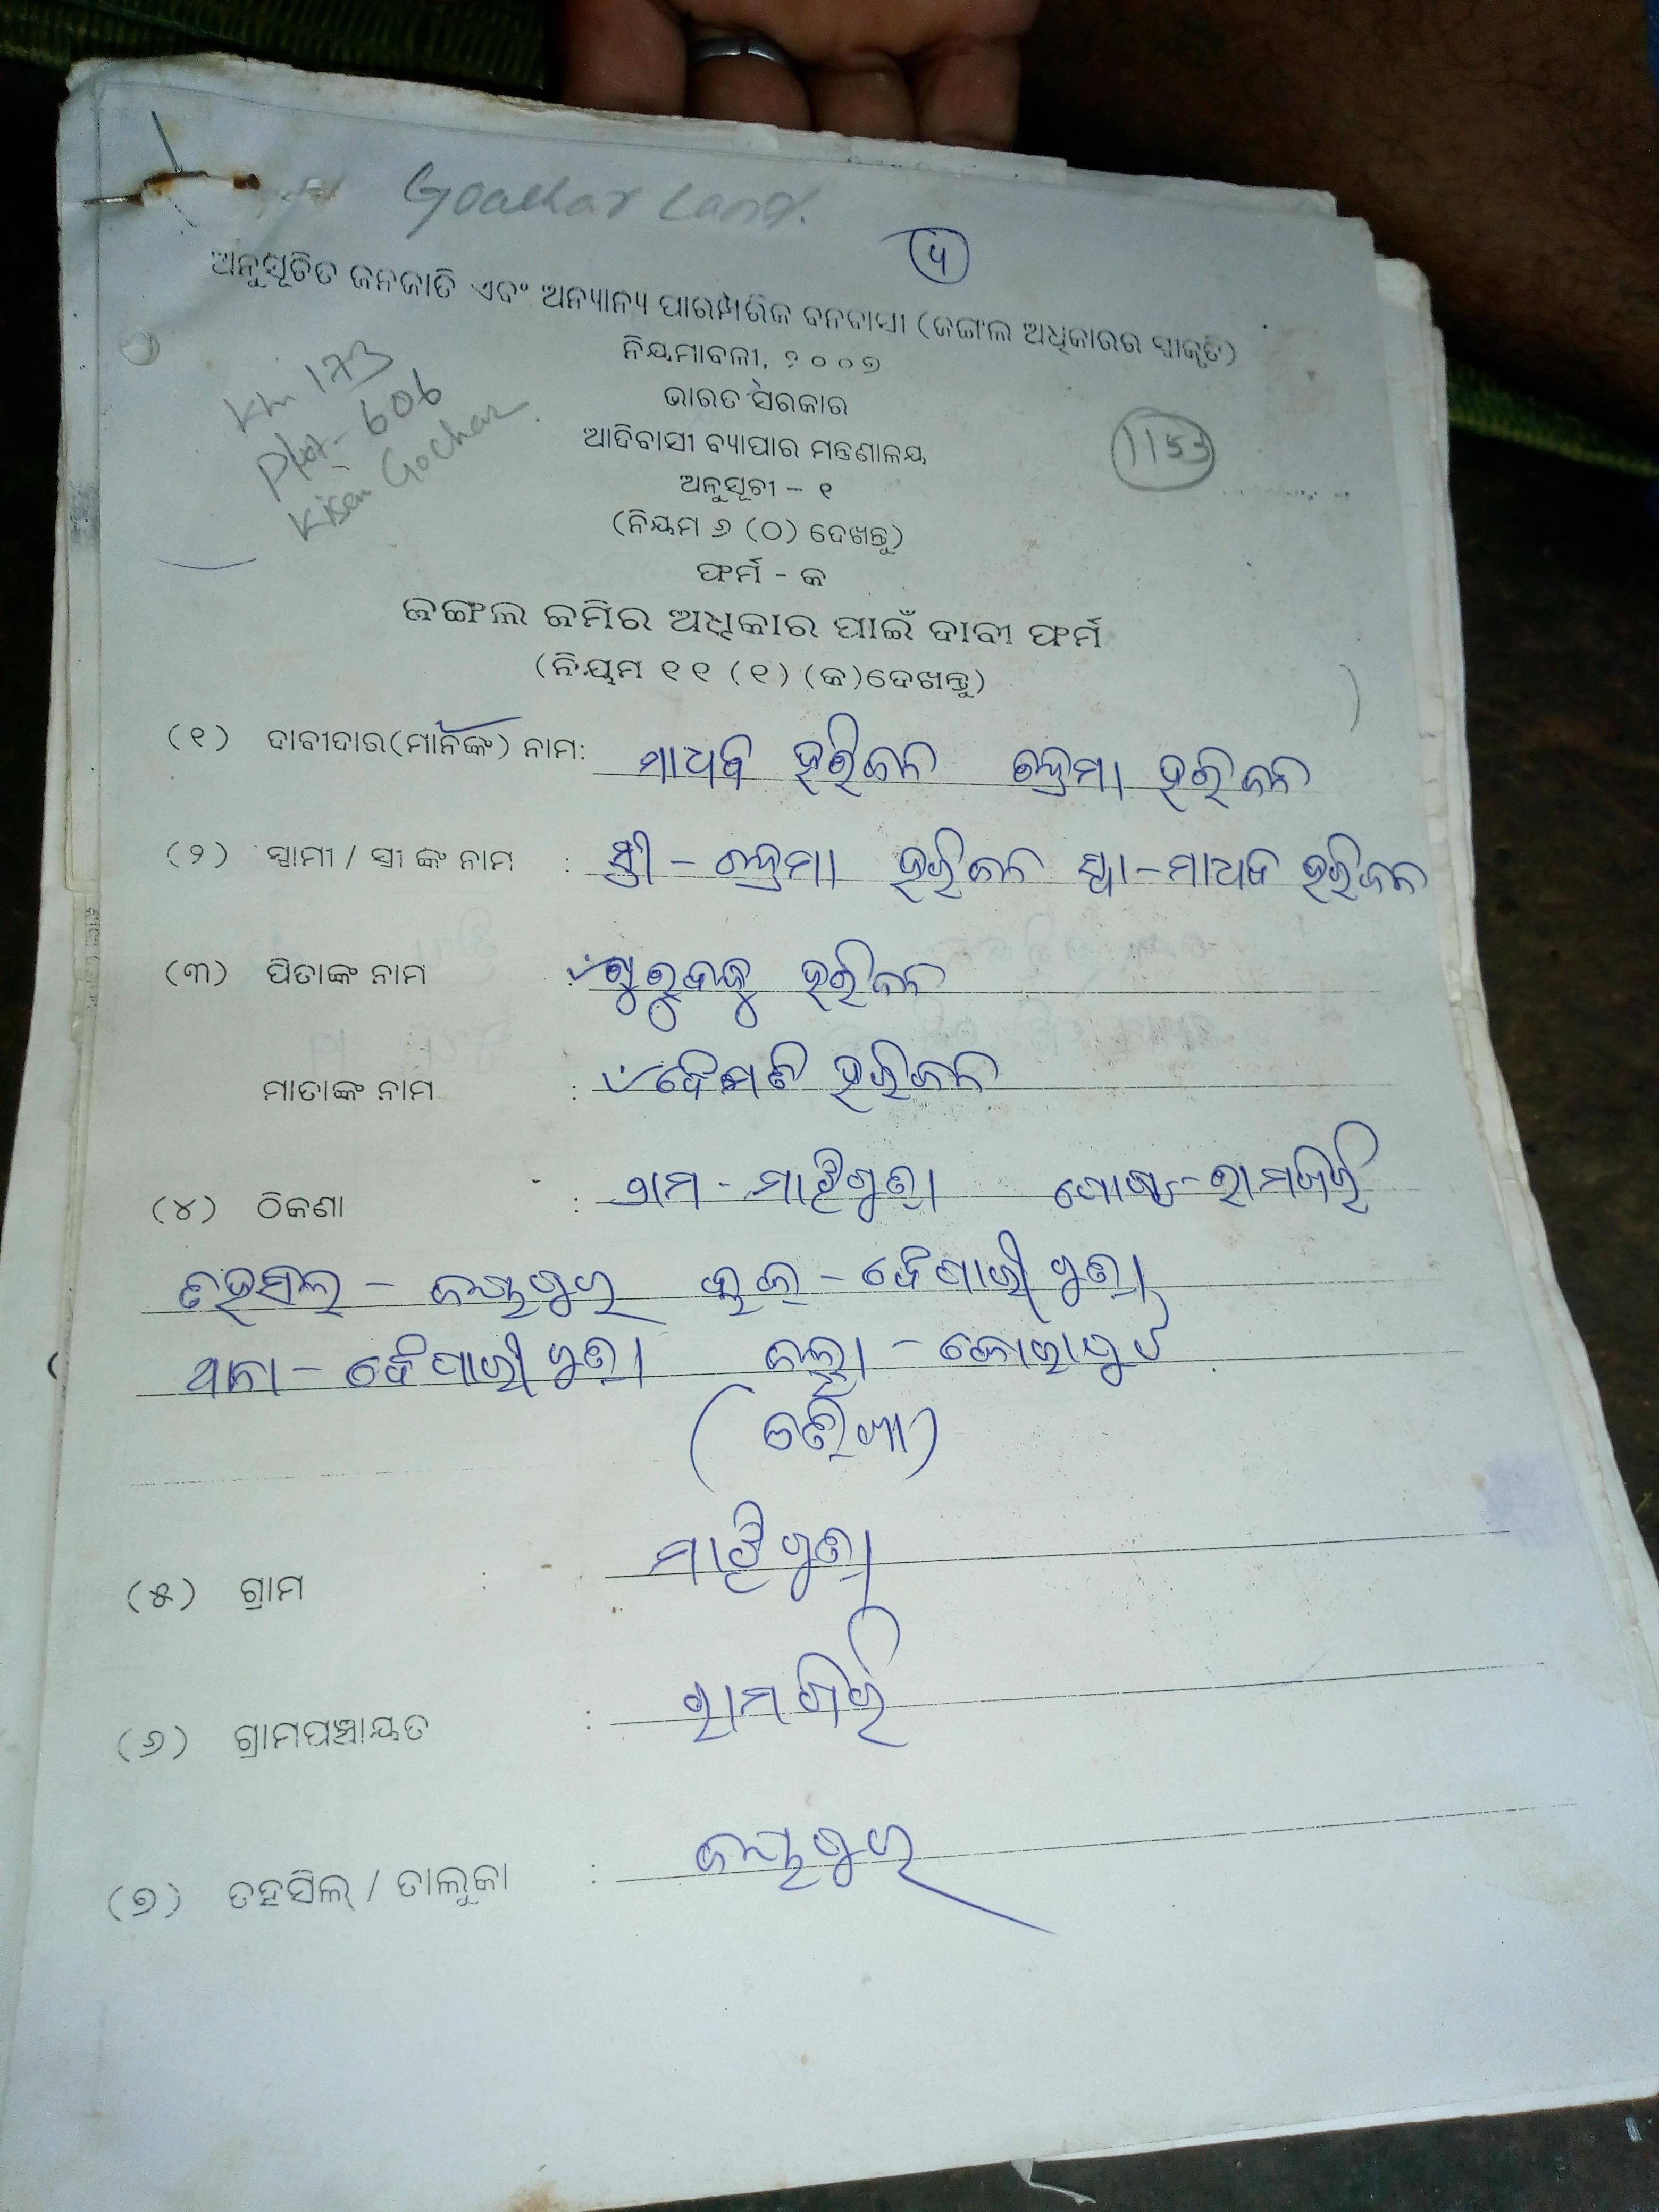 Goachar Land.
୫
ଅନୁସୂଚିତ ଜନଜାତି ଏବଂ ଅନ୍ୟାନ୍ୟ ପାରମ୍ପରିକ ବନବାସୀ (ଜଙ୍ଗଲ ଅଧିକାରର ସ୍ୱୀକୃତି)
ନିୟମାବଳୀ, ୨୦୦୭
ଭାରତ ସରକାର
ଆଦିବାସୀ ବ୍ୟାପାର ମନ୍ତ୍ରଣାଳୟ
ଅନୁସୂଚୀ - ୧
(ନିୟମ ୬ (ଠ) ଦେଖନ୍ତୁ)
ଫର୍ମ - କ
Km 173
Plot - 606
Kisan Gochar.
1153
ଜଙ୍ଗଲ ଜମିର ଅଧିକାର ପାଇଁ ଦାବୀ ଫର୍ମ
(ନିୟମ ୧୧ (୧) (କ)ଦେଖନ୍ତୁ)
(୧) ଦାବୀଦାର(ମାନଙ୍କ) ନାମ: ମାଧବ ହରିଜନ ହରିଜନ
(୨) ସ୍ୱାମୀ / ସ୍ତ୍ରୀ ଙ୍କ ନାମ : ସ୍ତ୍ରୀ - ହରିଜନ ସ୍ୱା - ମାଧବ ହରିଜନ
(୩) ପିତାଙ୍କ ନାମ : ଗୁରୁବନ୍ଧୁ ହରିଜନ
ମାତାଙ୍କ ନାମ : ହରିଜନ
(୪) ଠିକଣା : ଗ୍ରାମ - ମାଝିଗୁଡ଼ା ପୋଷ୍ଟ - ରାମଗିରି
ତହସିଲ - ଜୟପୁର ବ୍ଲକ - ବୈପାରୀଗୁଡ଼ା
ଥାନା - ବୈପାରୀଗୁଡ଼ା ଜିଲ୍ଲା - କୋରାପୁଟ
(ଓଡ଼ିଶା)
(୫) ଗ୍ରାମ : ମାଝିଗୁଡ଼ା
(୬) ଗ୍ରାମପଞ୍ଚାୟତ : ରାମଗିରି
(୭) ତହସିଲ୍ / ତାଲୁକା : ଜୟପୁର